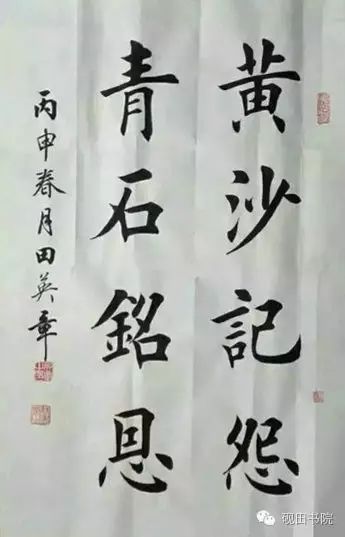 黄沙記怨
青石銘恩
丙申春月田英章
砚田书院